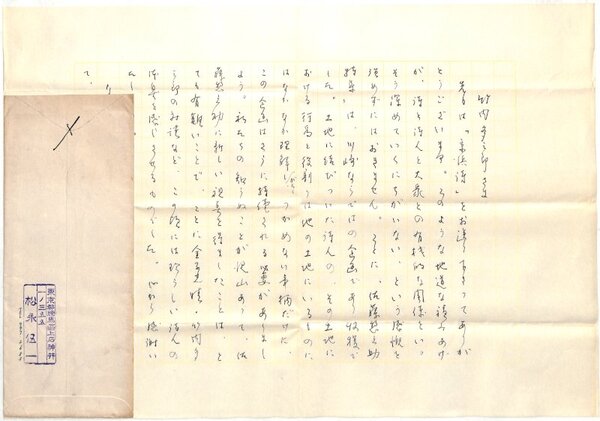 竹内多三郎さま
先日は「京浜詩」をお送り下さってありが
とうございます。このような地道な積みあげ
が、詩と詩人と大衆との有機的な関係といっ
そう深めていくにちがいない、という感慨を
強めずにはおきません。ことに、佐藤惣之助
特集」は、川崎ならではの企画であり収穫で
した。土地に結びついた詩人の、その土地に
おける行為と役割りは他の土地にいるものに
はなかなか理解しつかめない事柄だけに、
この企画はさらに持続される必要がありまし
ょう。私たちの知らぬことが沢山あって、佐
藤惣之助に新しい視点を得ましたことは、と
ても有難いことで、ことに金子光晴
の対談など、この頃には珍らしい詩人の
を感じさせるものでした。心から感謝い
たし
て、
東京都練馬区上石神井
松永伍一